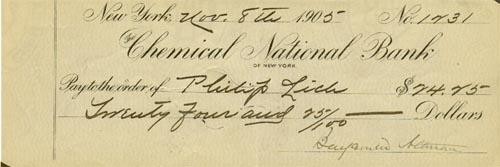 New York, Nov. 8th 1905 No. 1731
The Chemical National Bank
OF NEW YORK.
Pay to the order of Philip Lich $24.25
Twenty Four and 25/100 Dollars
Benjamin Altman